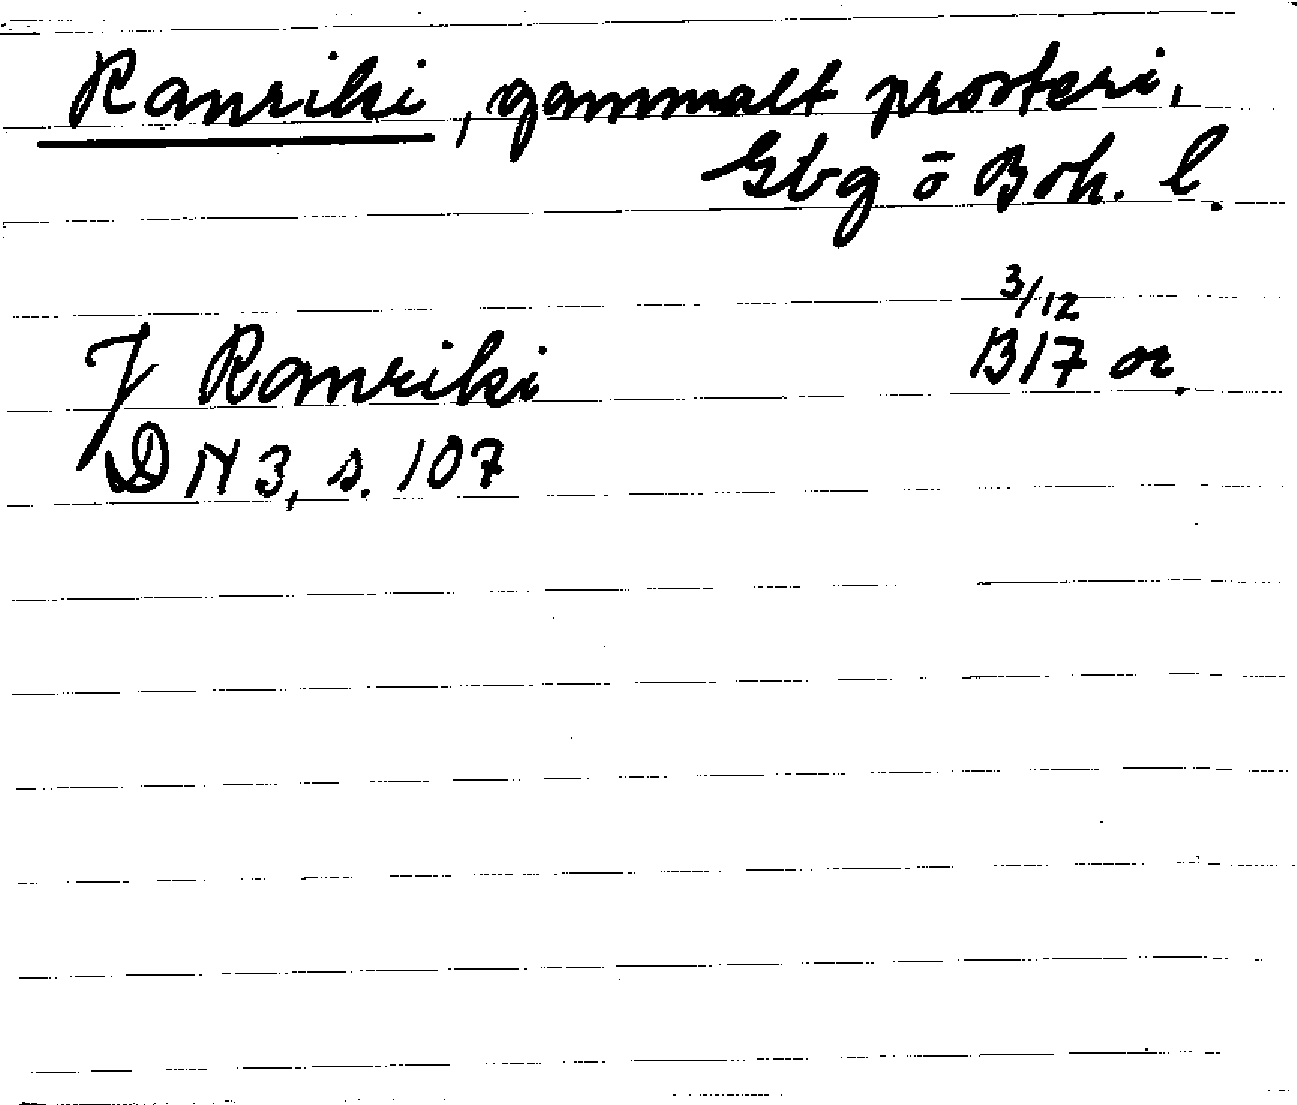 Ranriki, gammalt prosteri,
Gbg ō Boh. l.
3/12
J Ranriki B17 or.
DN 3, s. 107